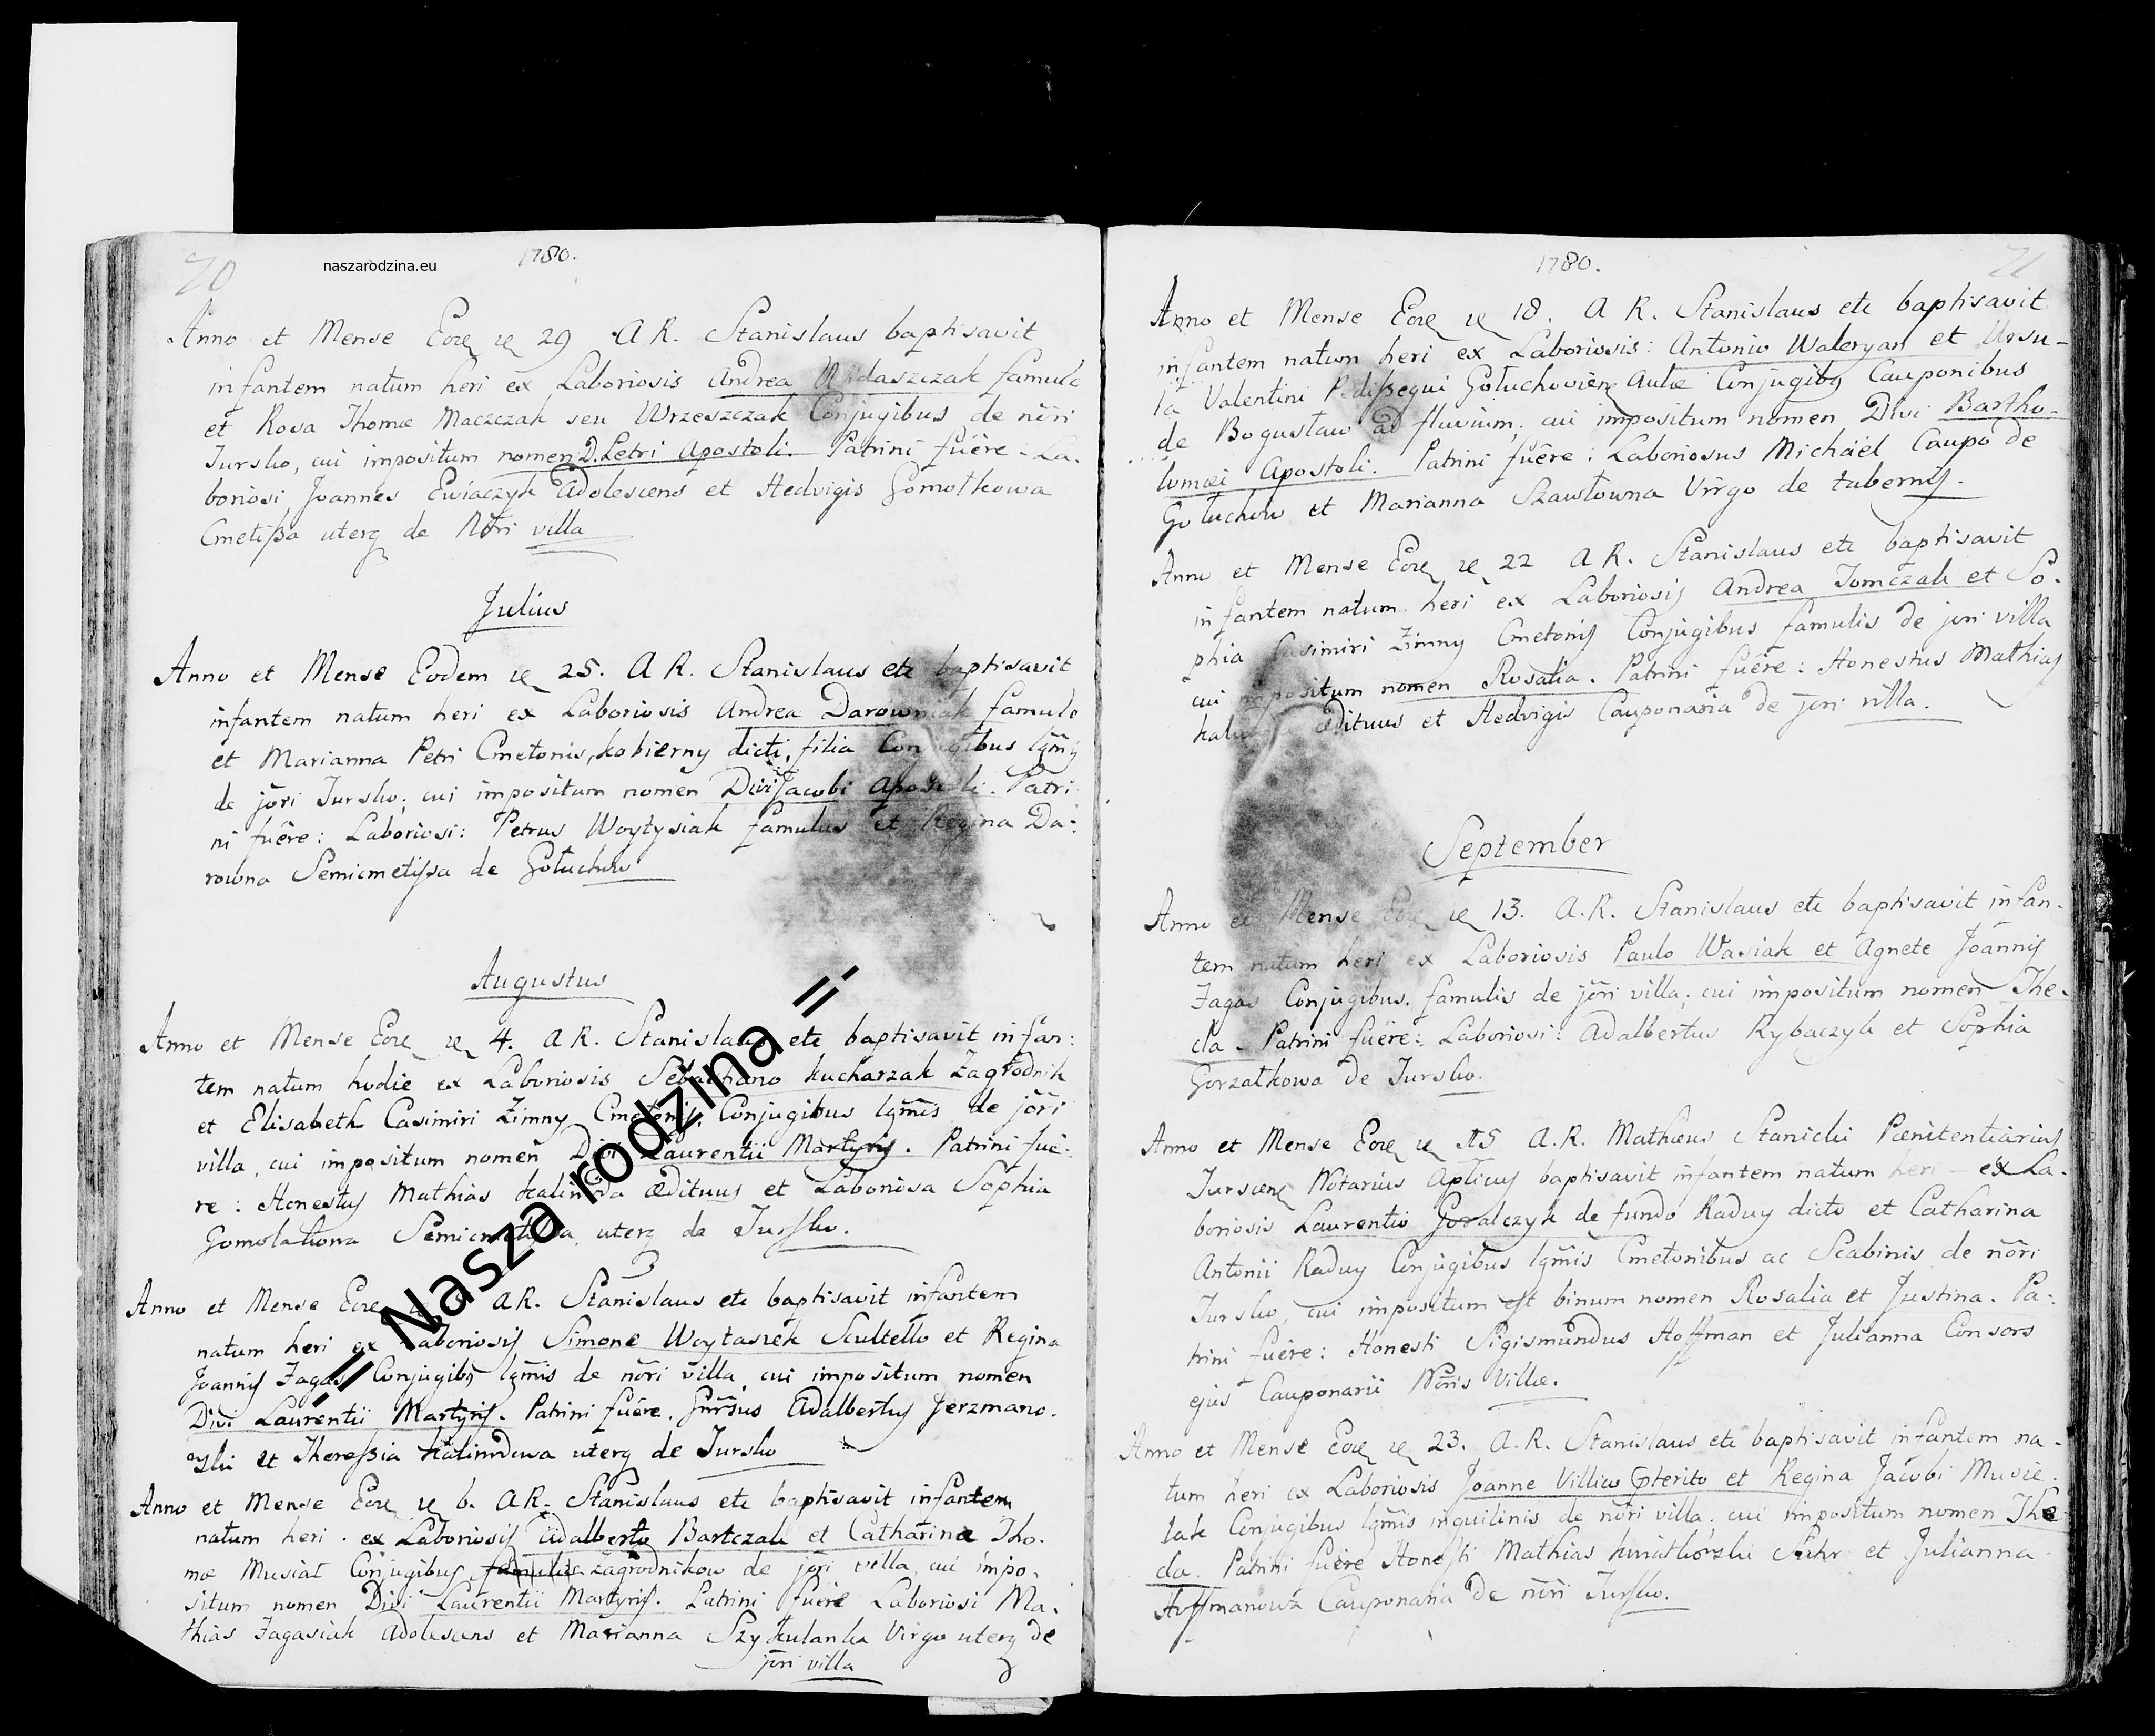 70
naszarodzina.eu
1780.
Anno et Mense Eore re 29 A R. Stanislaus baptisavit
infantem natum heri ex Laboriosis Andrea famulo
et Rosa Thomæ Maczczak seu Wrzeszczak Conjugibus de nrī
Tursko, cui impositum nomen D. Petri Apostoli. Patrini fuêre - La-
boriosi Joannes Ewiaczyk Adolescens et Hedvigis Gomolkowa
Cmetißa uterq de Nrī villa
Julius
Anno et Mense Eodem re 25. A R. Stanislaus etc baptisavit
infantem natum heri ex Laboriosis Andrea Darowniak famulo
et Marianna Petri Cmetonis, kobierny dicti, filia Conjugibus lgm̄s
de jōri Tursko; cui impositum nomen Divi Jacobi Apostoli. Patri
ni fuêre: Laboriosi: Petrus Woytysiak famulus et Regina Da-:
rowna Semicmetißa de Gołuchow
Augustus
Anno et Mense Eore re 4. A R. Stanislaus etc baptisavit infan:
tem natum hodie ex Laboriosis Sebastiano Kucharzak Zagrodnik
et Elisabeth Casimiri Zimny Cmetonis, Conjugibus lgm̄is de jōri
villa, cui impositum nomen Divi Laurentii Martyris. Patrini fuê-
re: Honestus Mathias Kalinoda Ædituus et Laboriosa Sophia
Gomolakowa Semicmetißa, uterq de Tursko.
Anno et Mense Eore re AR. Stanislaus etc baptisavit infantem
natum heri ex Laboriosis Simone Woytaszek Scultetto et Regina
Joannis Jagas Conjugibs lgm̄is de nōri villa, cui impositum nomen
Divi Laurentii Martyris. Patrini fuêre. Adalbertus Jerzmano-
wski et Thereßia uterq de Tursko
Anno et Mense Eore re 6. AR. Stanislaus etc baptisavit infantem
natum heri. ex Laboriosis Adalberto Bartczak et Catharina Tho-
mæ Musiał Conjugibus famulis zagrodnikow de jōri villa, cui impo-
situm nomen Divi Laurentii Martyris. Patrini fuêre Laboriosi Ma-
thias Jagasiak Adolescens et Marianna Szykulanka Virgo uterq de
jōri villa
.= Nasza rodzina =.
71
1780.
Anno et Mense Eore re 18. A R. Stanislaus etc baptisavit
infantem natum heri ex Laboriosis: Antonio Waleryan et Ursu-
la Valentini Pedißequi Gołuchovien Aulæ Conjugibs Cauponibus
de Bogusław ad fluvium; cui impositum nomen Divi Bartho-
lomæi Apostoli. Patrini fuêre: Laboriosus Michäel Caupo de
Gołuchow et Marianna Szawłowna Virgo de tabernis.
Anno et Mense Eore re 22 A R. Stanislaus etc baptisavit
infantem natum heri ex Laboriosis Andrea Tomczak et So-
phia Casimiri Zimny Cmetonis Conjugibus famulis de jōri villa
cui impositum nomen Rosalia. Patrini fuêre: Honestus Mathias
ædituus et Hedvigis Cauponaria de jōri villa.
September
Anno et Mense Eore re 13. A.R. Stanislaus etc baptisavit infan-
tem natum heri ex Laboriosis Paulo Wasiak et Agnete Joannis
Jagas Conjugibus. famulis de jōri villa; cui impositum nomen The-
cla. Patrini fuêre: Laboriosi: Adalbertus Rybaczyk et Sophia
Gorzałkowa de Tursko.
Anno et Mense Eore re 15 A.R. Mathæus Stanicki Pænitentiarius
Turscens Notarius Aplicus baptisavit infantem natum heri - ex La-
boriosis Laurentio Goralczyk de fundo Raduy dicto et Catharina
Antonii Raduy Conjugibus lgm̄is Cmetonibus ac Scabinis de nōri
Tursko, cui impositum est binum nomen Rosalia et Justina. Pa-:
trini fuêre: Honesti Sigismundus Hoffman et Julianna Consors
ejus Cauponarii Nōris Villæ.
Anno et Mense Eore re 23. A.R. Stanislaus etc baptisavit infantem na-
tum heri ex Laboriosis Joanne Villico et Regina Jacobi Musie-
lak Conjugibus lgm̄is inquilinis de nōri villa. cui impositum nomen The
cla. Patrini fuêre Honesti Mathias Kwiatkowski et Julianna
Hoffmanowa Cauponaria de nōri Tursko.